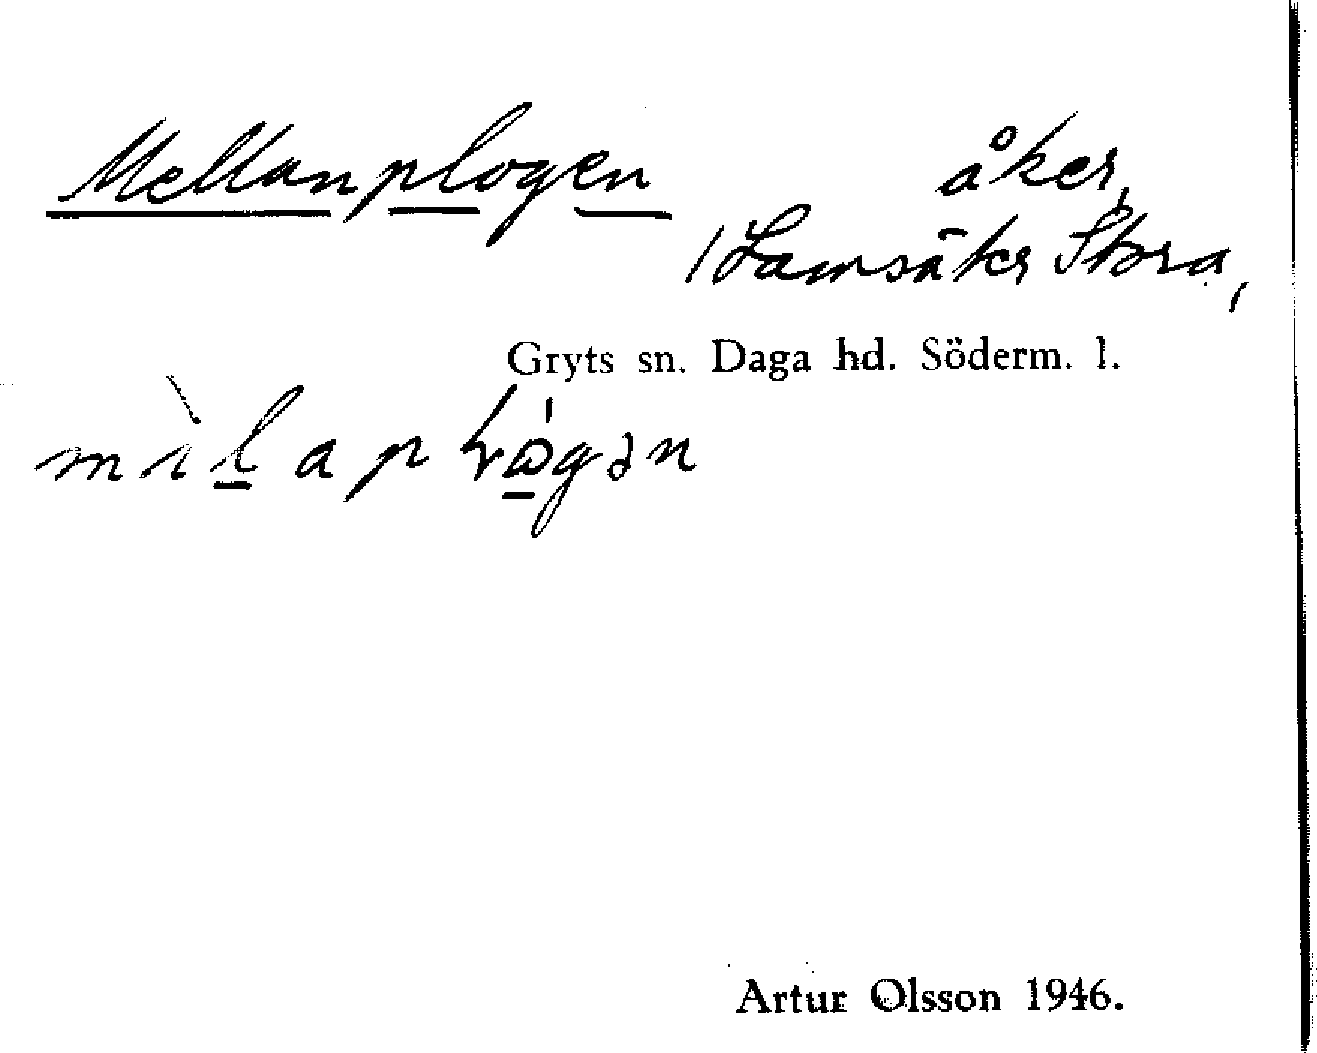 Mellanplogen åker,
/ Lamsäkr Stora,
Gryts sn. Daga hd. Söderm. l.
Artur Olsson 1946.